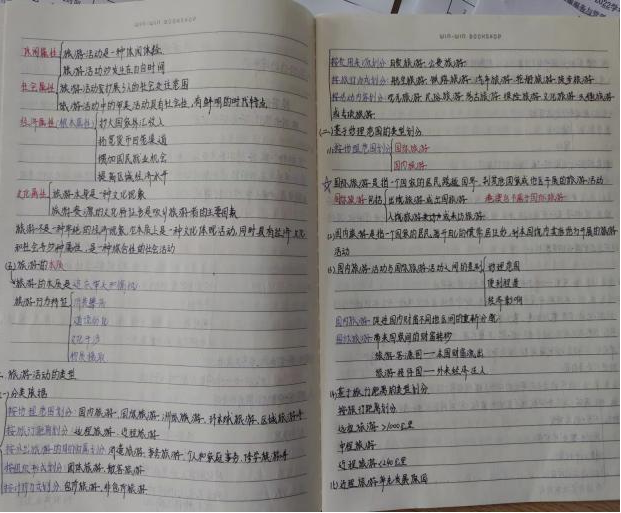 WIN-WIN BOOKSHOP
休闲属性 旅游活动是一种休闲体验
旅游活动均发生在自由时间
社会属性 旅游活动的社会交往意图
旅游活动中的审美活动具有社会性,有鲜明的时代特点
经济属性(根本属性) 扩大国家外汇收入
拓宽货币回笼渠道
增加国民就业机会
提高区域经济水平
文化属性 旅游本身是一种文化现象
旅游资源的文化特征亦是吸引旅游者的主要因素
旅游不是一种单纯的经济现象,它本质上是一种文化体现活动,同时具有经济文化
和社会多种属性,是一种综合性的社会活动
(五)旅游的本质
旅游的本质是
旅游行为特征 消费攀高
道德弱化
文化干涉
物质摄取
二、旅游活动的类型
(一)分类依据
按地理范围划分:国内旅游、国际旅游、洲际旅游、环球旅游、区域旅游等
按旅行距离划分:远程旅游、近程旅游
按外出旅游的目的归属划分:消遣旅游、事务旅游、个人和家庭事务
按组织形式划分:团体旅游、散客旅游
按计价方式划分:包价旅游、非包价旅游
WIN-WIN BOOKSHOP
按费用来源划分:自费旅游、公费旅游
按旅行方式划分:航空旅游、铁路旅游、汽车旅游、徒步旅游
按活动内容划分:观光旅游、民俗旅游、探险旅游、文化旅游
(二)基于地理范围的类型划分
(1)按地理范围划分 国际旅游
国内旅游
☆国际旅游是指一个国家的居民跨越国界,到其他国家或地区开展的旅游活动
国际旅游包括 出境旅游或出国旅游
入境旅游
(2)国内旅游是指一个国家的居民离开自己的惯常居住地,到本国境内其他地方开展的旅游
活动
(3)国内旅游活动与国际旅游活动之间的差别 地理范围
便利程度
经济影响
国内旅游:促进国内财富不同地区间的重新分配
国际旅游:带来国家间的财富转移
旅游客源国——本国财富流出
旅游接待国——外来经济注入
(4)基于旅行距离的类型划分
按旅行距离划分
远程旅游 >1000公里
中程旅游
近程旅游 <240公里
(5)近程旅游率先发展原因